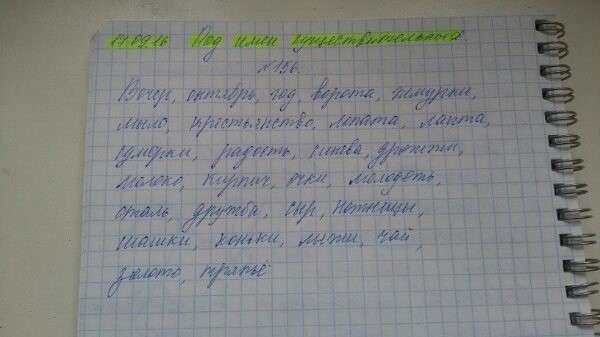 17.09.16 Род имен существительных.
№156.
Вечер, октябрь, год, ворота, жмурки,
мыло, крестьянство, лопата, лапта,
сумерки, радость, синева, дрожжи,
молоко, кирпич, очки, молодость,
сталь, дружба, сыр, ножницы,
шашки, коньки, лыжи, чай,
золото, тряпьё